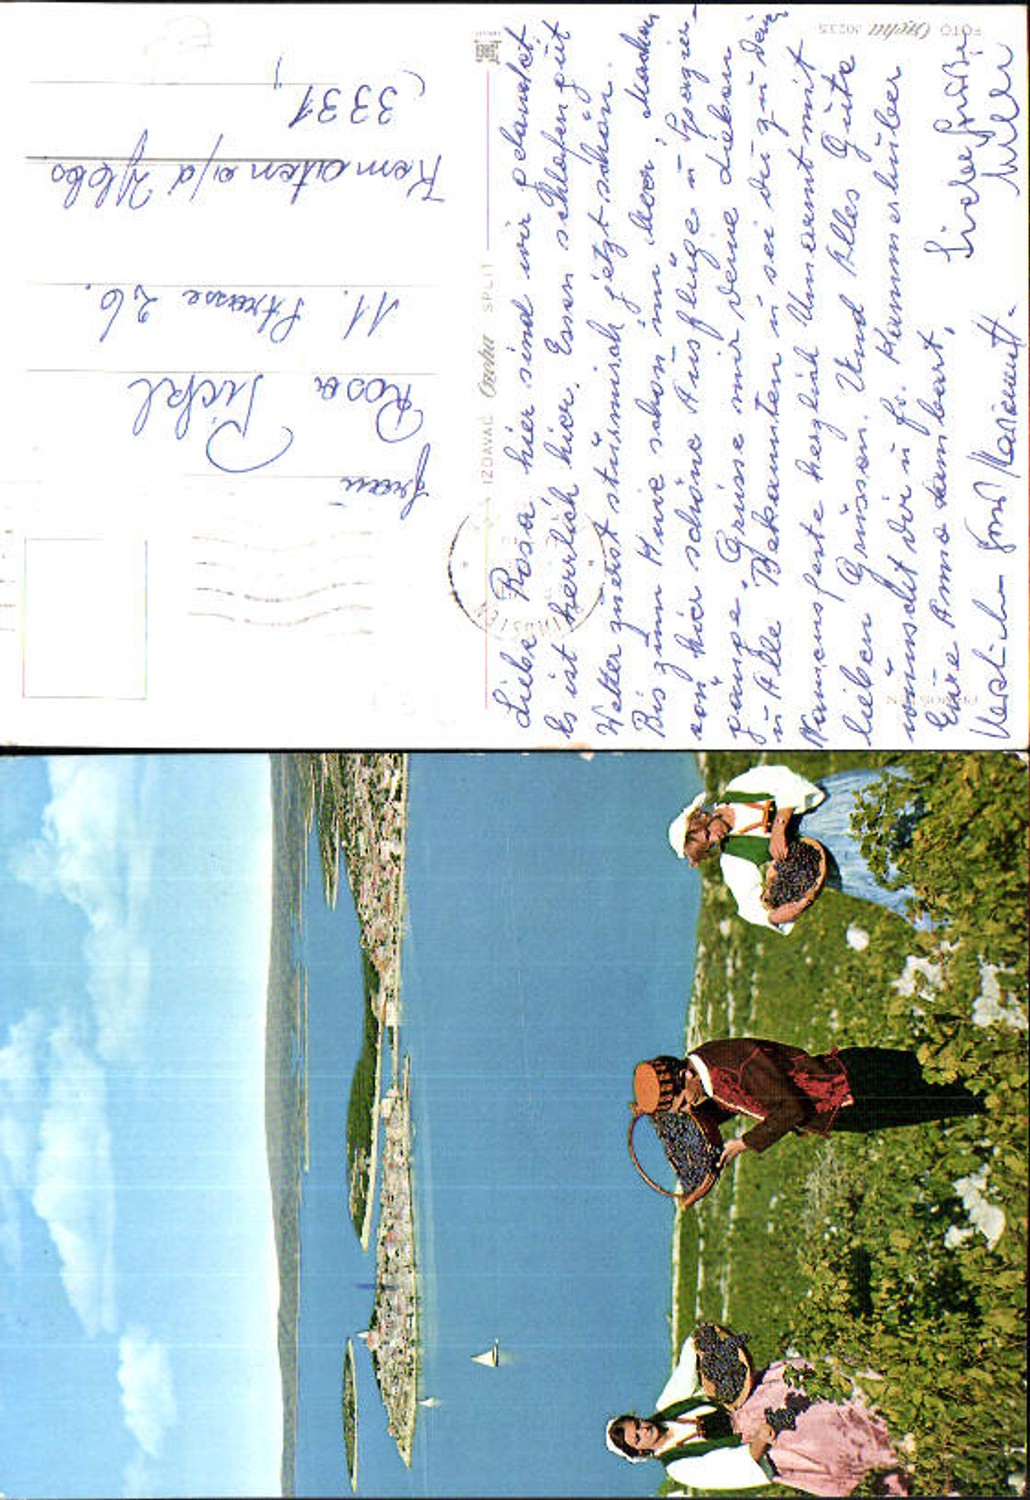 Liebe Rosa hier sind wir gelandet.
Es ist herrlich hier. Essen schlafen gut
Wetter zuerst stürmisch jetzt schön.
Bis zum Knie schon im Meer, Machen
von hier schöne Ausflüge u Spazier-
gänge. Grüsse mir deine Lieben
u Alle Bekannten u sei du zu dein
Namensfeste herzlich Umarmt mit
lieben Grüssen. Und Alles Gute
wünscht dir u Fr. Kammerhuber
Eure Anna
Liebe Grüße
Willi
Herzlichen Gruß
FOTO 30235
IZDAVAČ SPLIT
PRIMOŠTEN
Frau
Rosa Pickl
11. Strasse 26.
Kematen a/d Ybbs
3331